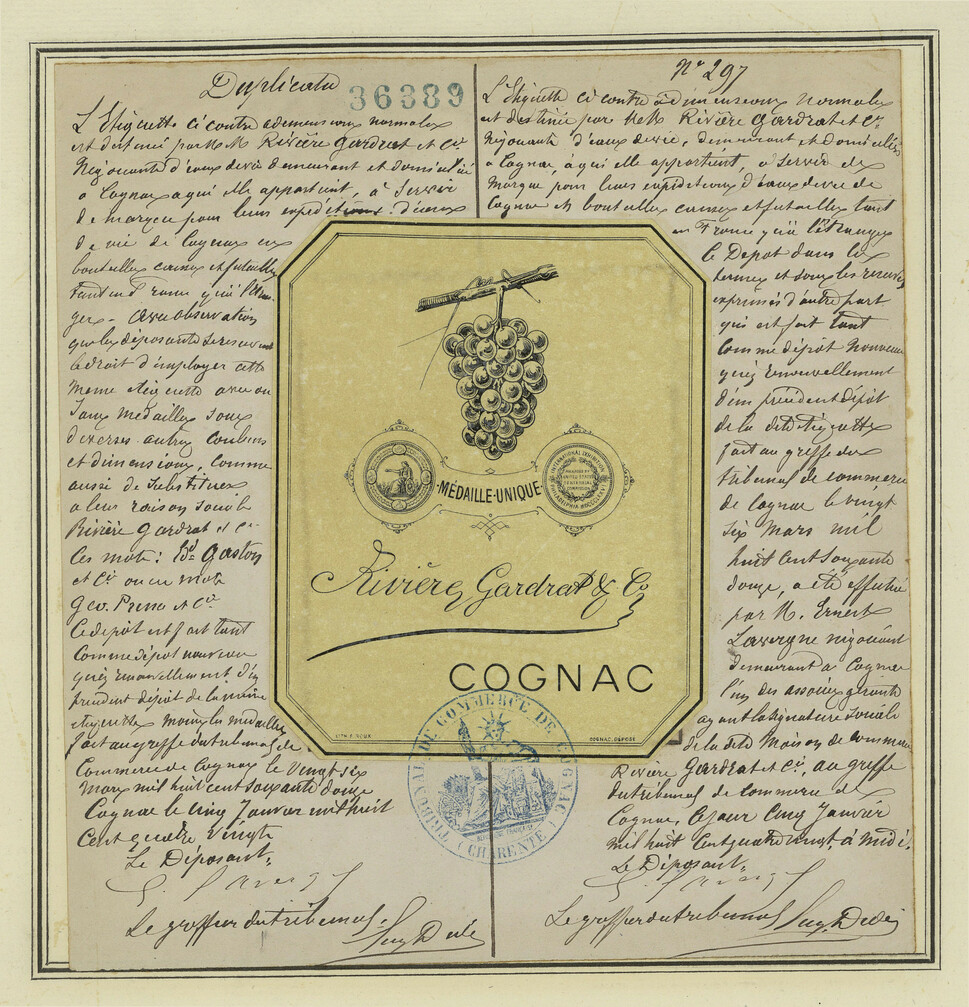 Duplicata
36389
L'Etiquette ci contre a dimensions normales
est destinée par M. M. Rivière Gardrat et Cie
Négociants d'eaux de vie demeurant et domiciliés
à Cognac a qui elle appartient, à Servir
de marque pour leurs expéditions d'eaux
de vie de Cognac en
bouteilles caisses et futailles
tant en France qu'à l'Etran
ger. Avec observation
que les déposants se reservent
le droit d'employer cette
Meme etiquette avec ou
Sans Medailles sous
diverses autres couleurs
et dimensions, comme
aussi de Substituer
a leur raison sociale
Rivière Gardrat et Cie
Ces mots: Ed. Gaston
et Cie ou ces mots
Geo. et Co
Ce dépôt est fait tant
Comme dépôt nouveau
qu'en renouvellement d'un
précédent dépôt de la même
etiquette moins les medailles
fait au greffe du tribunal de
Commerce de Cognac le Vingt six
Mars mil huit cent soixante douze
Cognac le Cinq Janvier mil huit
Cent quatre vingts
Le Déposant,
Le greffier du tribunal
No 297
L'Etiquette ci contre à dimensions normales
est destinée par M. M. Rivière Gardrat et Cie
Négociants d'eaux de vie, demeurant et domiciliés
à Cognac, à qui elle appartient, à Servir de
Marque pour leurs expéditions d'eaux de vie de
Cognac en bouteilles caisses et futailles tant
en France qu'à l'étranger
le Dépôt dans les
termes et sous les réserves
exprimés d'autre part
qui est fait tant
Comme dépôt Nouveau
qu'en renouvellement
d'un précédent dépôt
de la dite étiquette
fait au greffe du
tribunal de commerce
de Cognac le vingt
six Mars mil
huit cent soixante
douze, a été effectué
par M. Ernest
Lavergne négociant
demeurant à Cognac
l'un des associés gérants
ayant la signature sociale
de la dite Maison de commerce
Rivière Gardrat et Cie, au greffe
du tribunal de Commerce de
Cognac, ce jour Cinq Janvier
mil huit Cent quatre vingt, à Midi.
Le Déposant,
Le greffier du tribunal
MÉDAILLE-UNIQUE
INTERNATIONAL EXHIBITION
PHILADELPHIA MDCCCLXXVI
AWARDED BY
UNITED STATES
CENTENNIAL
COMMISSION
Rivière, Gardrat & Co
COGNAC
COGNAC, DÉPOSÉ
TRIBUNAL DE COMMERCE DE COGNAC
(CHARENTE)